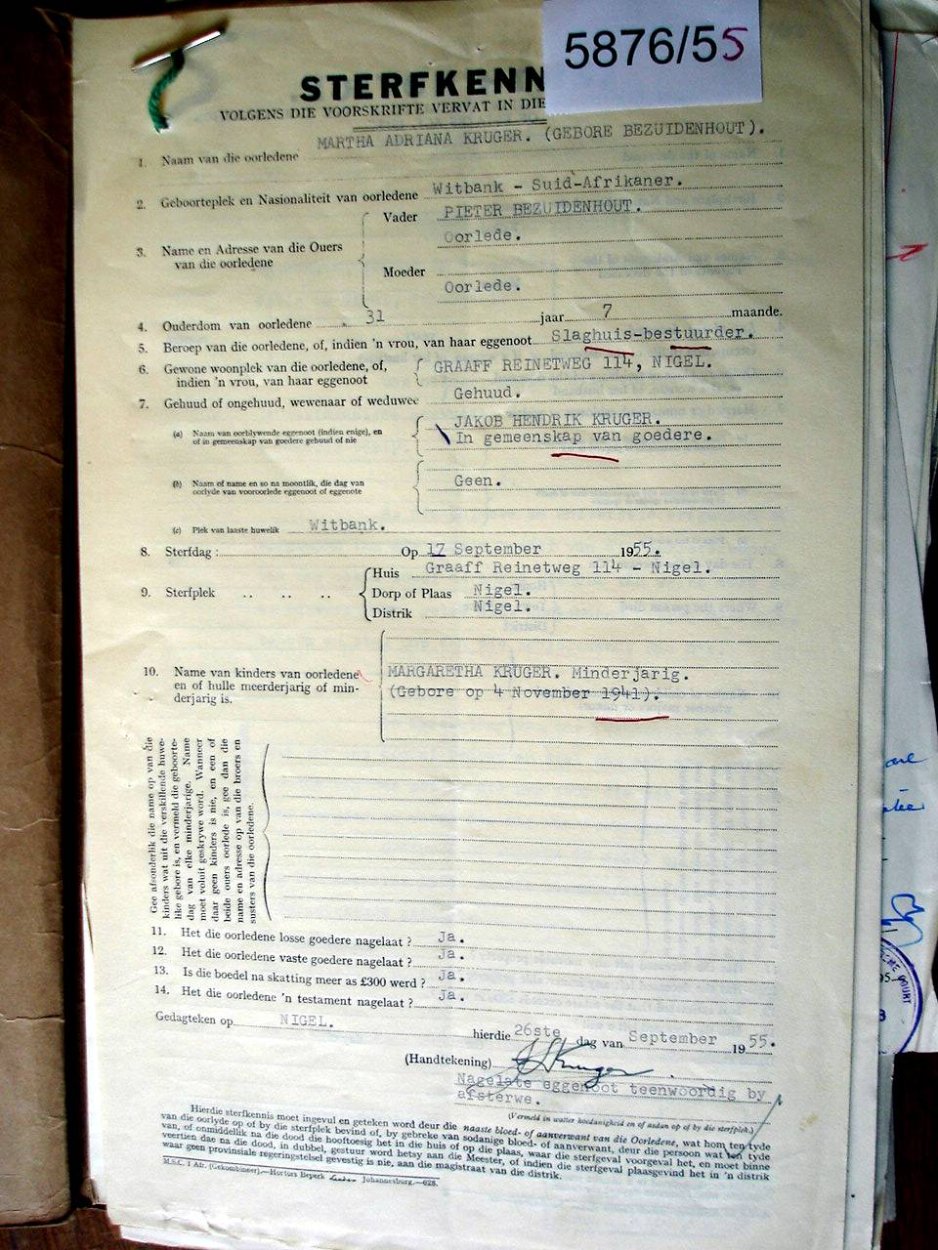 5876/55
STERFKENN
VOLGENS DIE VOORSKRIFTE VERVAT IN DIE
1. Naam van die oorledene MARTHA ADRIANA KRUGER. (GEBORE BEZUIDENHOUT).
2. Geboorteplek en Nasionaliteit van oorledene Witbank - Suid-Afrikaner.
3. Name en Adresse van die Ouers van die oorledene
Vader PIETER BEZUIDENHOUT.
Oorlede.
Moeder
Oorlede.
4. Ouderdom van oorledene 31 jaar 7 maande.
5. Beroep van die oorledene, of, indien 'n vrou, van haar eggenoot Slaghuis-bestuurder.
6. Gewone woonplek van die oorledene, of, GRAAFF REINETWEG 114, NIGEL.
indien 'n vrou, van haar eggenoot
7. Gehuud of ongehuud, wewenaar of weduwee Gehuud.
(a) Naam van oorblywende eggenoot (indien enige), en JAKOB HENDRIK KRUGER.
of in gemeenskap van goedere gehuud of nie In gemeenskap van goedere.
(b) Naam of name en so na moontlik, die dag van Geen.
oorlyde van vooroorlede eggenoot of eggenote
(c) Plek van laaste huwelik Witbank.
8. Sterfdag : Op 17 September 1955.
9. Sterfplek .. .. ..
Huis Graaff Reinetweg 114 - Nigel.
Dorp of Plaas Nigel.
Distrik Nigel.
10. Name van kinders van oorledene MARGARETHA KRUGER. Minderjarig.
en of hulle meerderjarig of min- (Gebore op 4 November 1941).
derjarig is.
Gee afsonderlik die name op van die
kinders wat uit die verskillende huwe-
like gebore is, en vermeld die geboorte-
dag van elke minderjarige. Name
moet voluit geskrywe word. Wanneer
daar geen kinders is nie, en een of
beide ouers oorlede is, gee dan die
name en adresse op van die broers en
susters van die oorledene.
11. Het die oorledene losse goedere nagelaat ? Ja.
12. Het die oorledene vaste goedere nagelaat ? Ja.
13. Is die boedel na skatting meer as £300 werd ? Ja.
14. Het die oorledene 'n testament nagelaat ? Ja.
Gedagteken op NIGEL. hierdie 26ste dag van September 1955.
(Handtekening) Kruger
Nagelate eggenoot teenwoordig by
afsterwe.
(Vermeld in watter hoedanigheid en of aedan op of by die sterfplek.)
Hierdie sterfkennis moet ingevul en geteken word deur die naaste bloed- of aanverwant van die Oorledene, wat hom ten tyde
van die oorlyde op of by die sterfplek bevind of, by gebreke van sodanige bloed- of aanverwant, deur die persoon wat ten tyde
van, of onmiddelik na die dood die hooftoesig het in die huis of op die plaas, waar die sterfgeval voorgeval het, en moet binne
veertien dae na die dood, in dubbel, gestuur word hetsy aan die Meester, of indien die sterfgeval plaasgevind het in 'n distrik
waar geen provinsiale regeringstelsel gevestig is nie, aan die magistraat van die distrik.
M.S.C. 1 Afr. (Gekombineer).—Hortors Beperk Johannesburg.—628.
COURT